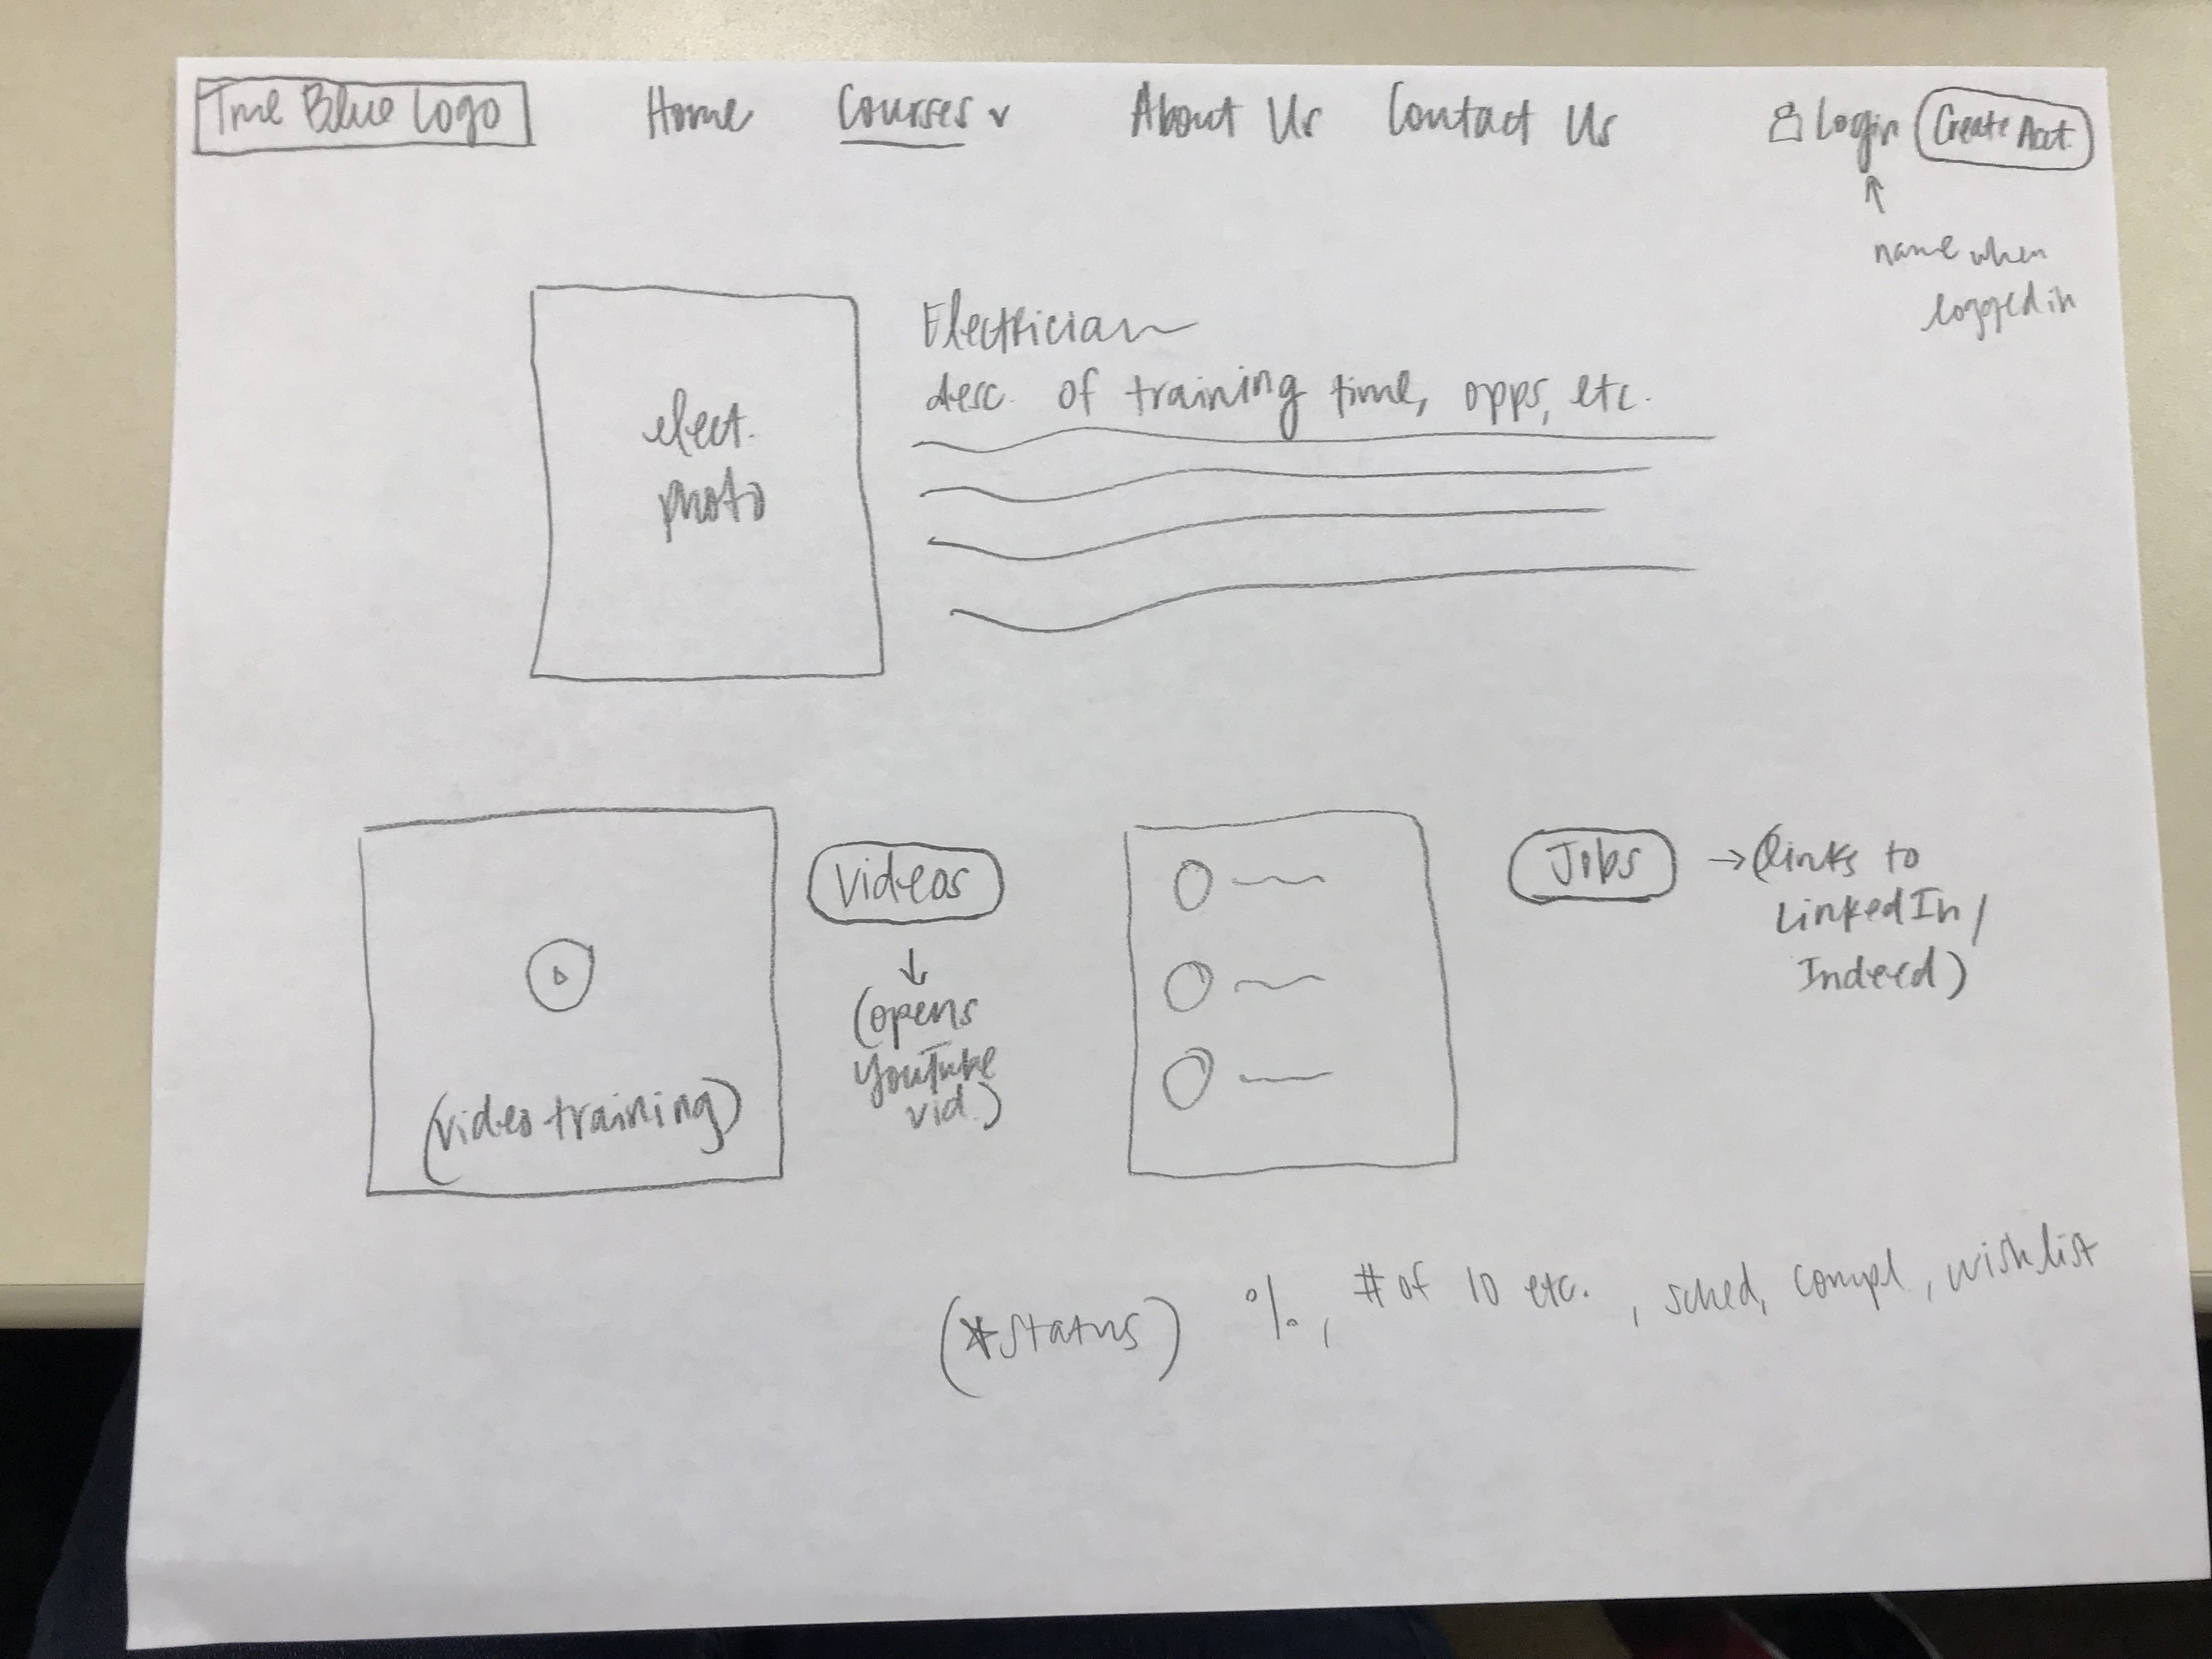 True Blue Logo Home Courses v About Us Contact Us Login Create Acct
name when
logged in
elect.
photo
Electrician
desc. of training time, opps, etc.
(video training)
Videos
(opens
youtube
vid.)
Jobs → (links to
LinkedIn/
Indeed)
(*status) %, # of 10 etc., sched, compl, wishlist